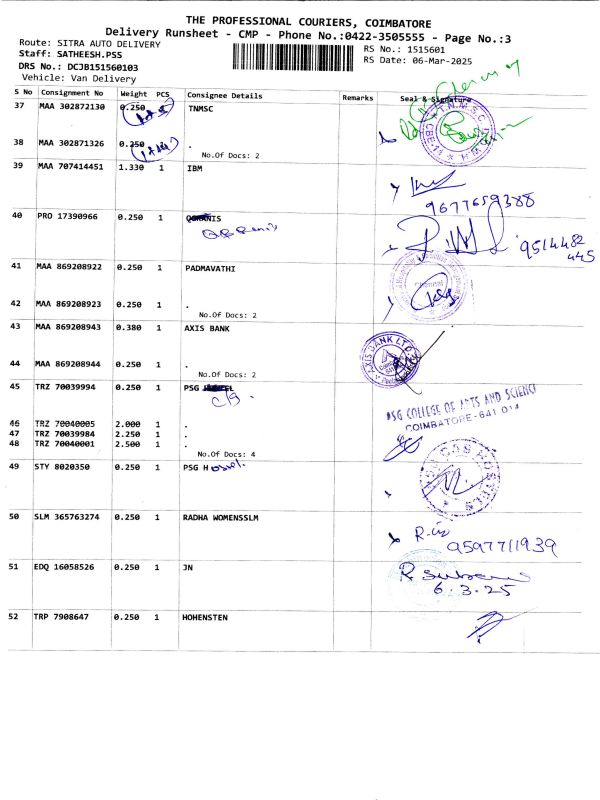 THE PROFESSIONAL COURIERS, COIMBATORE
Delivery Runsheet - CMP - Phone No.:0422-3505555 - Page No.:3
Route: SITRA AUTO DELIVERY
RS No.: 1515601
Staff: SATHEESH.PSS
RS Date: 06-Mar-2025
DRS No.: DCJB151560103
Vehicle: Van Delivery
S No Consignment No Weight PCS Consignee Details Remarks Seal & Signature
37 MAA 302872130 0.250 TNMSC
38 MAA 302871326 0.250 .
No.Of Docs: 2
39 MAA 707414451 1.330 1 IBM
9677659388
40 PRO 17390966 0.250 1
9514482
445
41 MAA 869208922 0.250 1 PADMAVATHI
42 MAA 869208923 0.250 1 .
No.Of Docs: 2
43 MAA 869208943 0.380 1 AXIS BANK
AXIS BANK LTD
44 MAA 869208944 0.250 1 .
No.Of Docs: 2
45 TRZ 70039994 0.250 1 PSG
PSG COLLEGE OF ARTS AND SCIENCE
COIMBATORE-641 014
46 TRZ 70040005 2.000 1 .
47 TRZ 70039984 2.250 1 .
48 TRZ 70040001 2.500 1 .
No.Of Docs: 4
49 STY 8020350 0.250 1 PSG Hostel.
50 SLM 365763274 0.250 1 RADHA WOMENSSLM
9597711939
51 EDQ 16058526 0.250 1 JN
6.3.25
52 TRP 7908647 0.250 1 HOHENSTEN